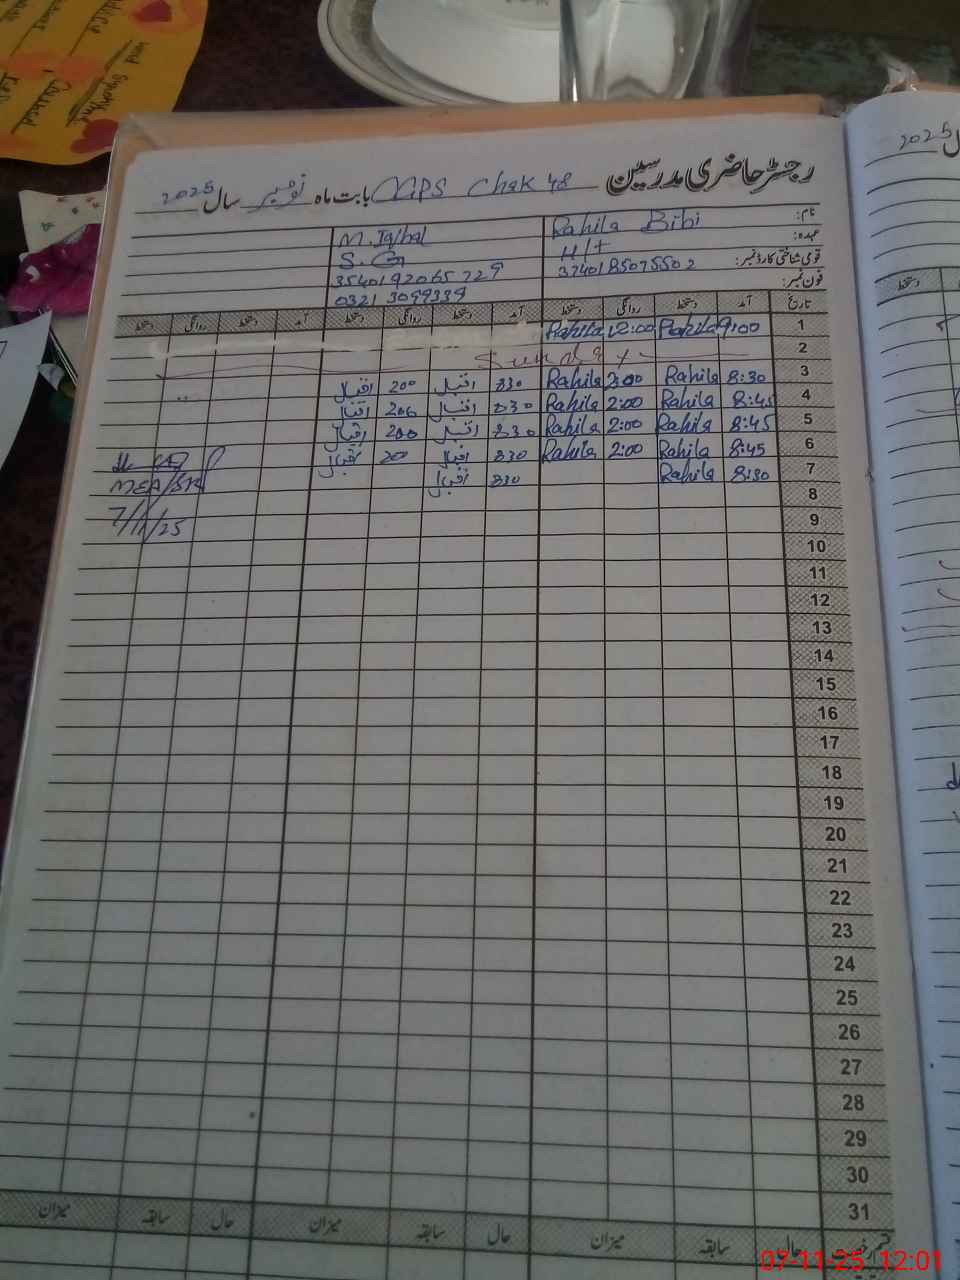 رجسٹر حاضری مدرسین GGPS Chak 48 بابت ماہ نومبر سال 2025
نام: Rahila Bibi M. Iqbal
عہدہ: H/t S.G
قومی شناختی کارڈ نمبر: 3740185075502 3540192065729
فون نمبر: 0321 3099339
تاریخ آمد دستخط روانگی دستخط آمد دستخط روانگی دستخط آمد دستخط روانگی دستخط
1 9:00 Rahila 12:00 Rahila
2 Sunday
3 8:30 Rahila 2:00 Rahila 830 اقبال 200 اقبال
4 8:45 Rahila 2:00 Rahila 830 اقبال 200 اقبال
5 8:45 Rahila 2:00 Rahila 830 اقبال 200 اقبال
6 8:45 Rahila 2:00 Rahila 830 اقبال 200 اقبال
7 8:30 Rahila 830 اقبال
MEA
7/11/25
8
9
10
11
12
13
14
15
16
17
18
19
20
21
22
23
24
25
26
27
28
29
30
31
حال سابقہ میزان حال سابقہ میزان حال سابقہ میزان
2025
دستخط
07-11-25 12:01